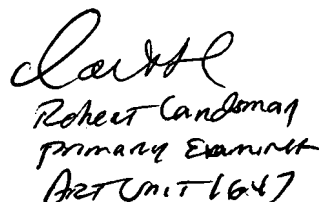 Robert Landsman
Primary Examiner
ART UNIT 1647